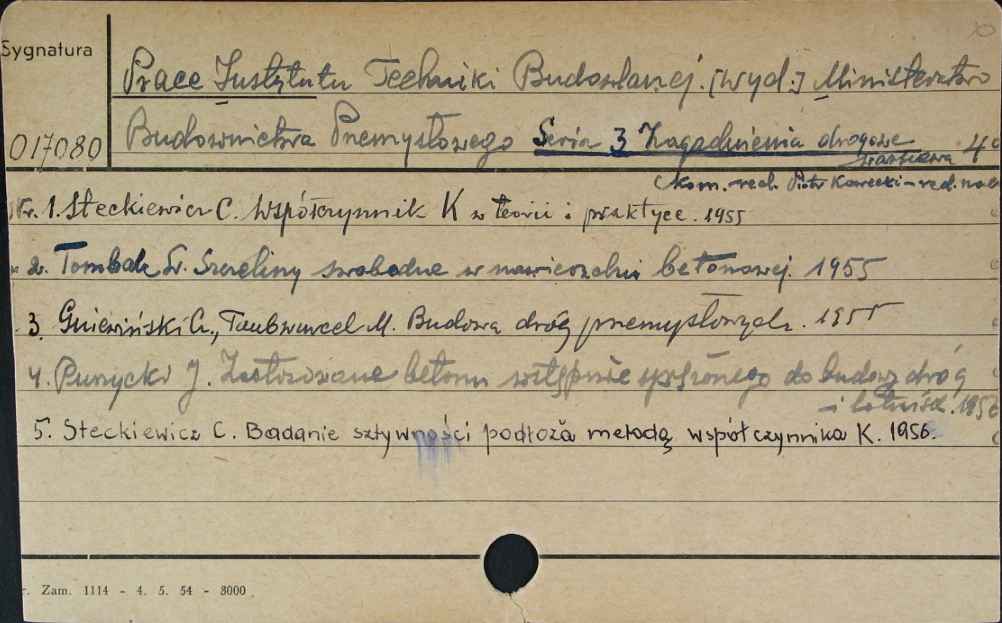 Sygnatura
Prace Instytutu Techniki Budowlanej. [Wyd.:] Ministerstwo
017080 Budownictwa Przemysłowego Seria 3 Zagadnienia drogowe 4°
Kom. red. Piotr Kawecki - red. nacz
Nr. 1. Steckiewicz C. Współczynnik K w teorii i praktyce. 1955
" 2. Tombak Szczeliny swobodne w nawierzchni betonowej. 1955
3. Gniewiński Taubwurcel M. Budowa dróg przemysłowych. 1955
4. J. Zastosowanie betonu wstępnie sprężonego do budowy dróg
i lotnisk. 1956
5. Steckiewicz C. Badanie sztywności podłoża metodą współczynnika K. 1956.
r. Zam. 1114 - 4. 5. 54 - 8000